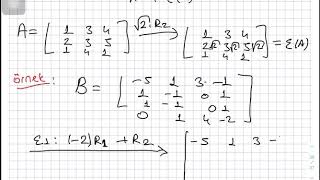 A = [ 1 3 4
2 3 5
1 4 1 ] √2 R2 → [ 1 3 4
2√2 3√2 5√2
1 4 1 ] = ε(A)
örnek: B = [ -5 1 3 -1
1 -1 0 1
1 -1 0 1
0 1 4 -2 ]
ε1: (-2)R1 + R2 → [ -5 1 3 -